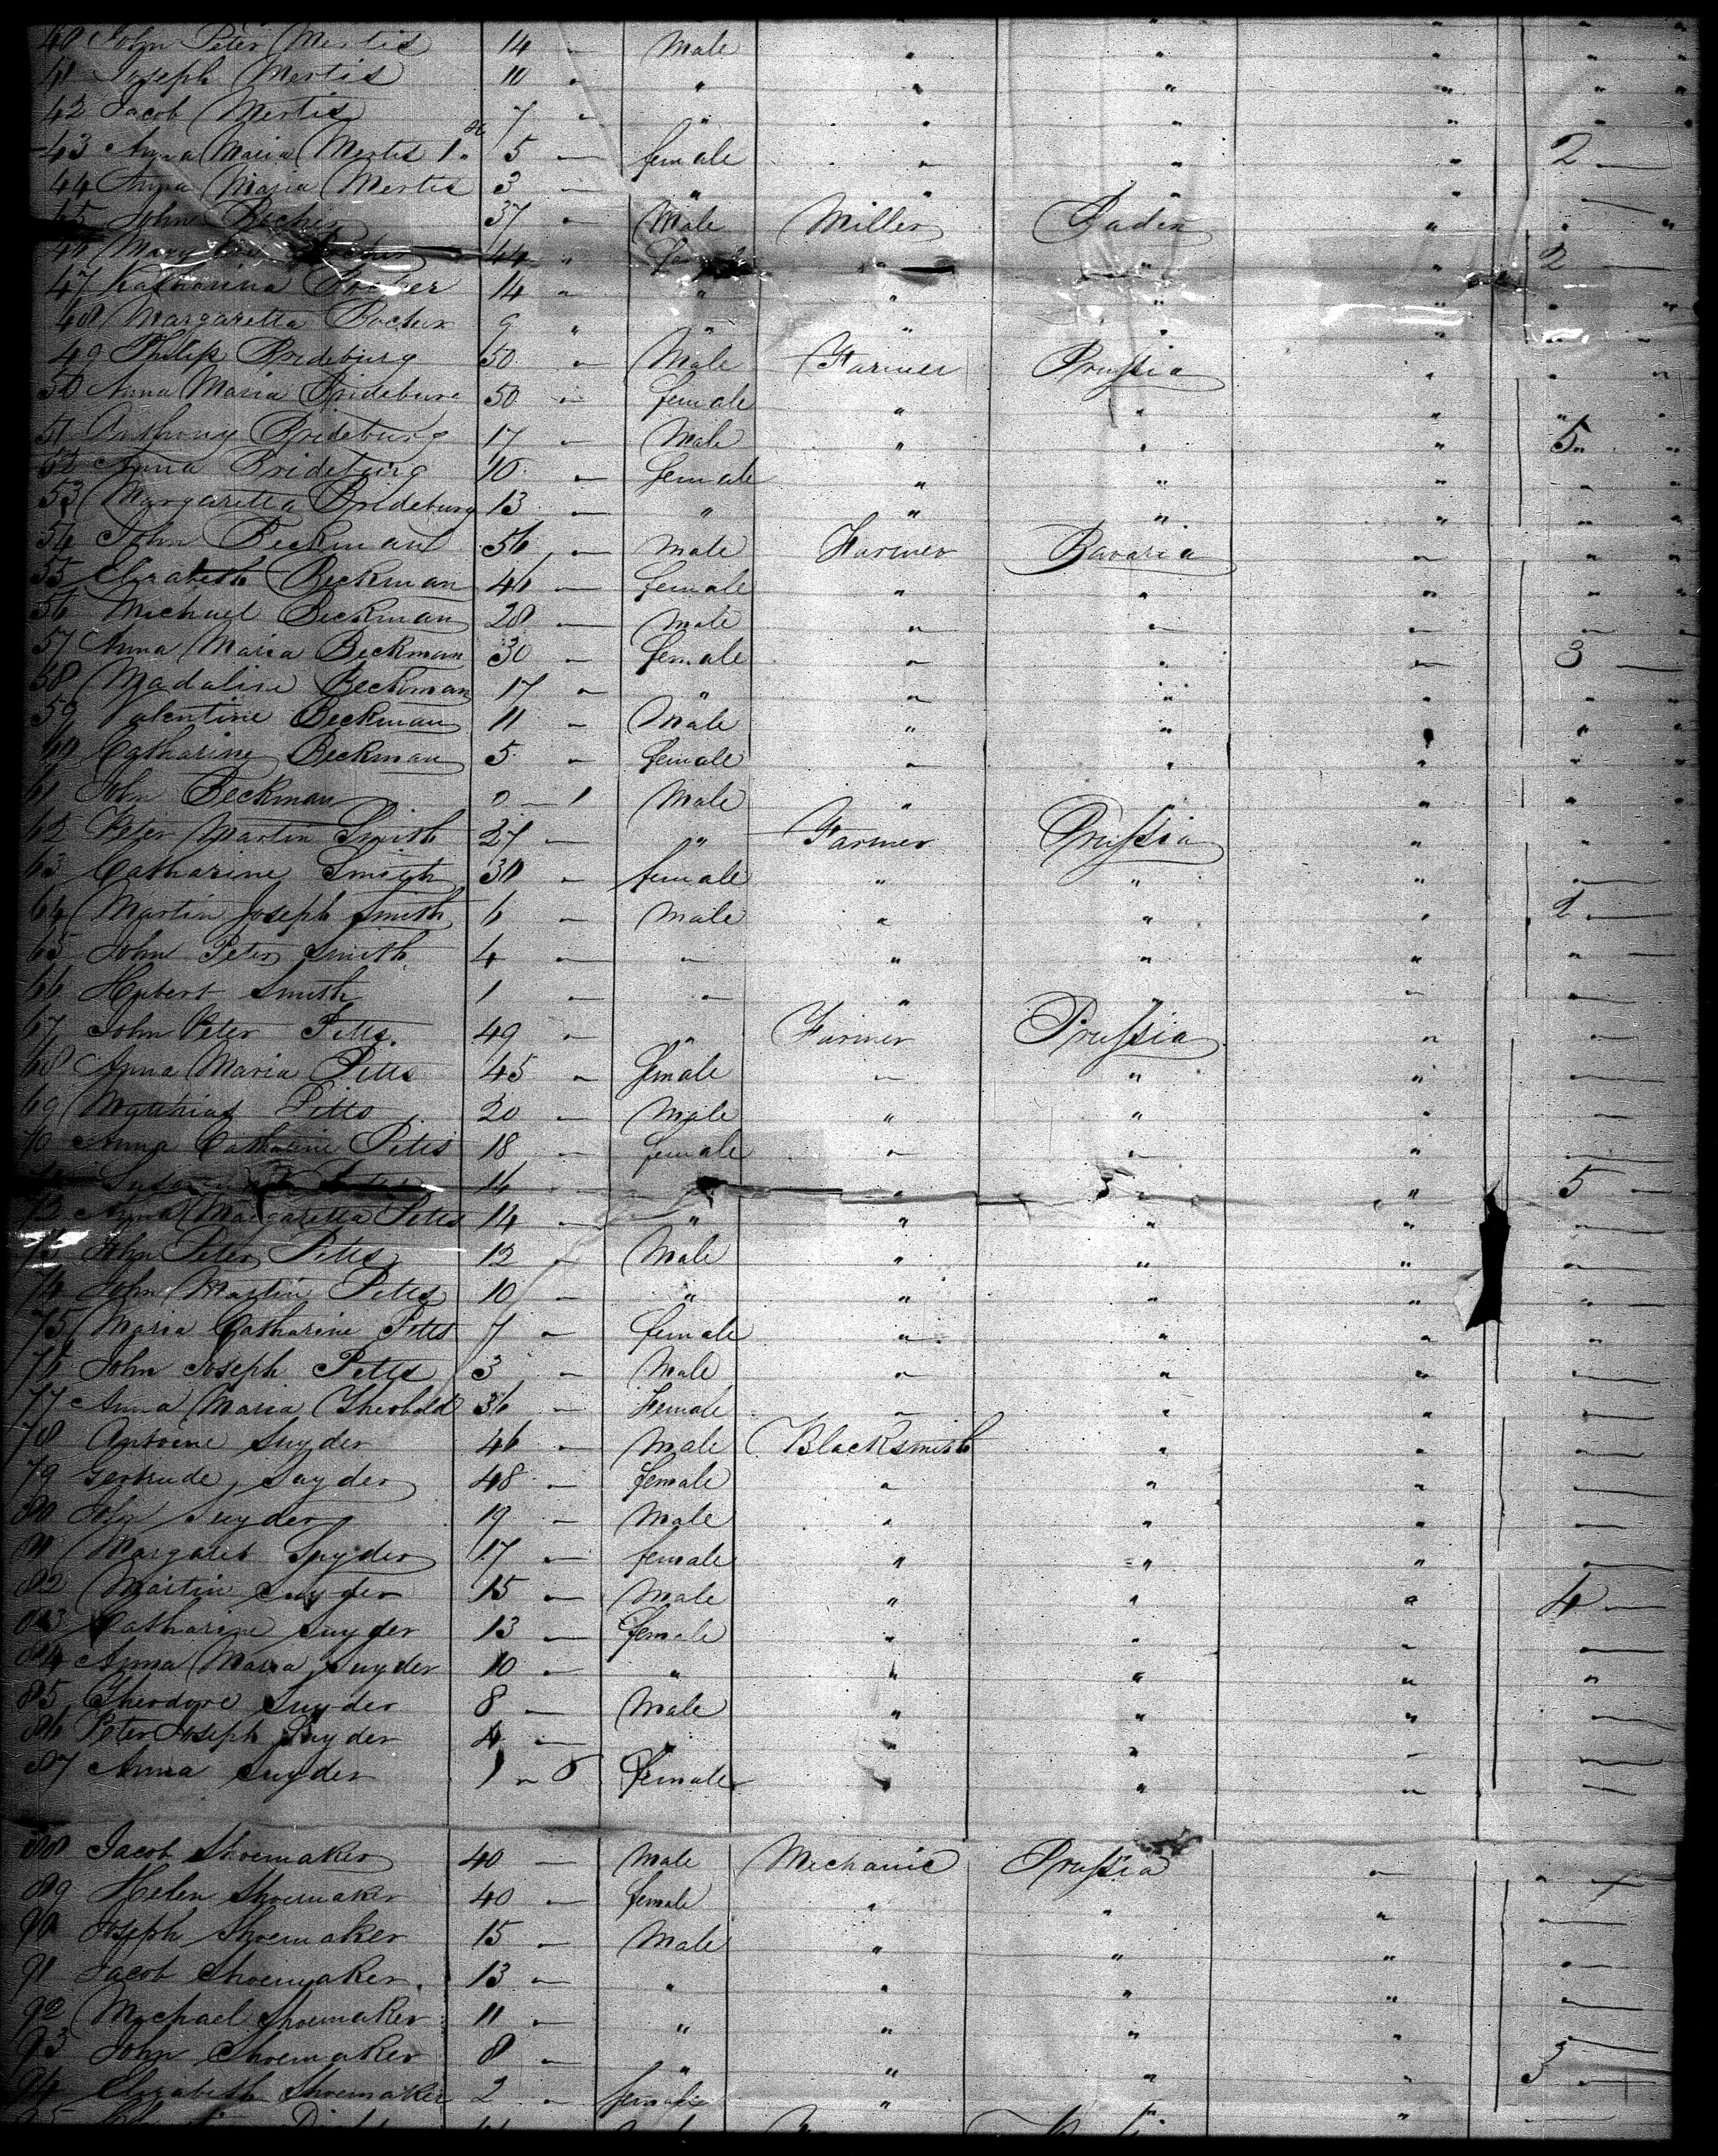 40 John Peter Mertis 14 — Male " " " "
41 Joseph Mertis 10 " " " " " "
42 Jacob Mertis 7 " " " " " "
43 Anna Maria Mertis 1. 5 — female " " " 2 —
44 Anna Maria Mertis 3 — " " " " "
45 John 37 " Male Miller Baden " "
46 Mary 44 " " " " 2 —
47 Katharina 14 " " " " " "
48 Margaretta 9 " " " " " "
49 Philip Brideburg 50 " Male Farmer Prussia " "
50 Anna Maria Brideburg 50 " female " " " "
51 Anthony Brideburg 17 — Male " " " 5 "
52 Anna Brideburg 10 — female " " " "
53 Margaretta Brideburg 13 — " " " " "
54 John Beckman 56 — Male Farmer Bavaria " "
55 Elizabeth Beckman 46 — female " " " "
56 Michael Beckman 28 — Male " " " "
57 Anna Maria Beckman 30 — female " " " 3 —
58 Madaline Beckman 17 " " " " " "
59 Valentine Beckman 11 — Male " " " "
60 Catharine Beckman 5 " female " " " "
61 John Beckman — 1 Male " " " "
62 Peter Martin Smith 27 — " Farmer Prussia " "
63 Catharine Smith 30 " female " " " "
64 Martin Joseph Smith 6 — Male " " " 2 —
65 John Peter Smith 4 — " " " " "
66 Hubert Smith 1 — " " " " "
67 John Peter Pitts. 49 — " Farmer Prussia " "
68 Anna Maria Pitts 45 " female " " " —
69 Matthias Pitts 20 — Male " " " —
70 Anna Catharine Pitts 18 — female " " " —
16 — " " " " 5 —
72 Anna Margaretta Pitts 14 — " " " " —
73 John Peter Pitts 12 " Male " " " "
74 John Martin Pitts 10 — " " " " "
75 Maria Catharine Pitts 7 — female " " " "
76 John Joseph Pitts 3 — Male " " " —
77 Anna Maria Theobald 36 — Female " " " —
78 Antoine Snyder 46 — Male Blacksmith " " "
79 Gertrude Snyder 48 — female " " " "
80 John Snyder 19 — Male " " " —
81 Margaret Snyder 17 — female " " " —
82 Martin Snyder 15 — Male " " " 4 —
83 Catharine Snyder 13 — female " " " —
84 Anna Maria Snyder 10 — " " " " "
85 Theodore Snyder 8 — Male " " " —
86 Peter Joseph Snyder 4 — " " " " —
87 Anna Snyder female " " " —
88 Jacob Shoemaker 40 — Male Mechanic Prussia " "
89 Helen Shoemaker 40 — female " " " —
90 Joseph Shoemaker 15 — Male " " " —
91 Jacob Shoemaker 13 — " " " " —
92 Michael Shoemaker 11 — " " " " —
93 John Shoemaker 8 — " " " " —
94 Elizabeth Shoemaker 2 — female " " "